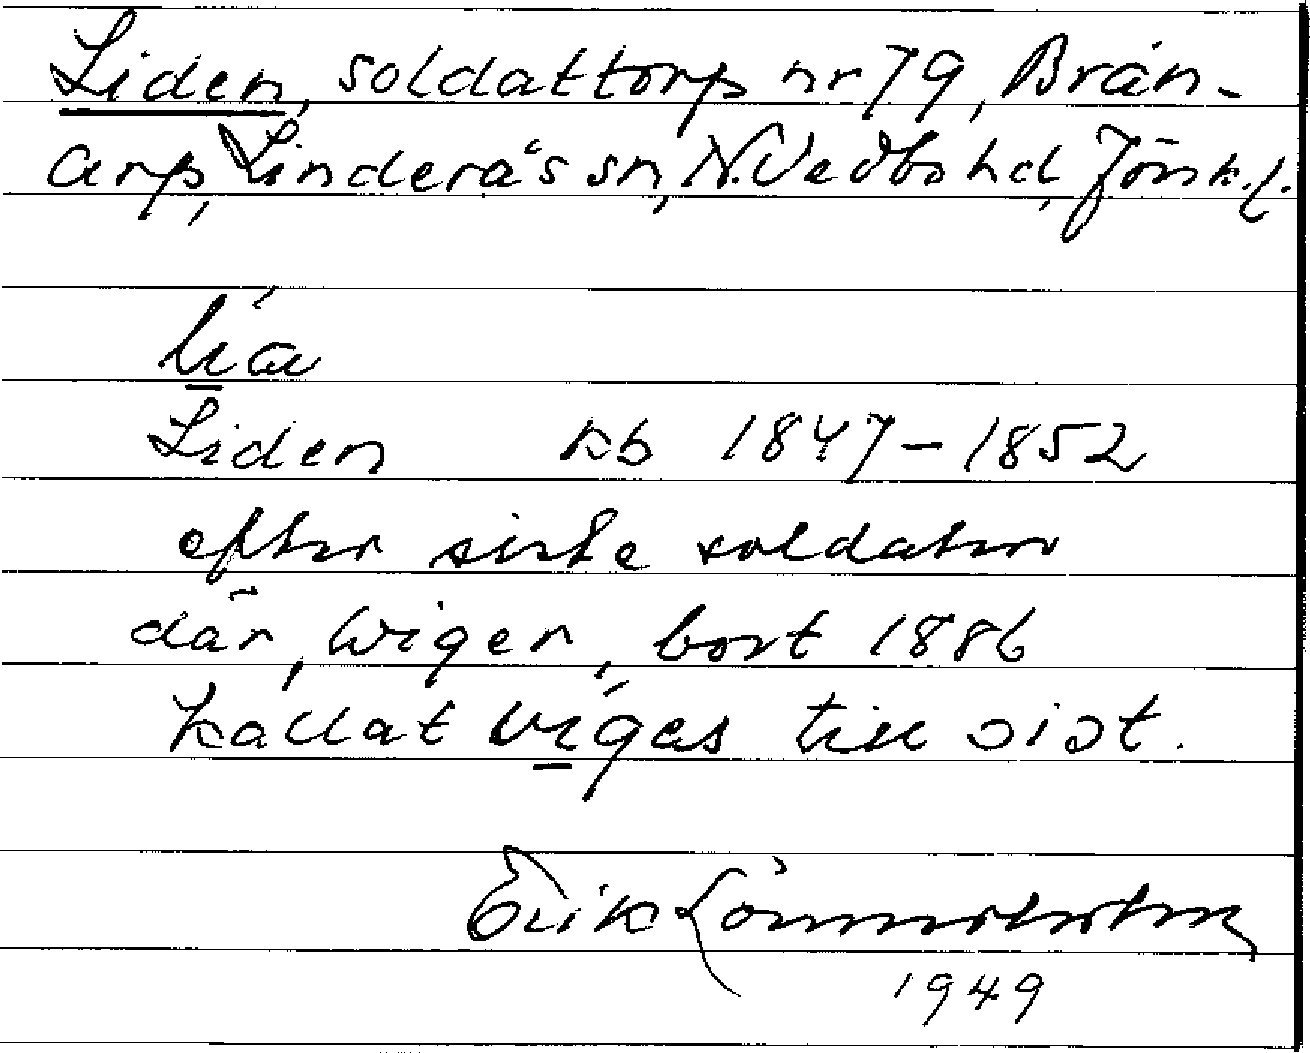 Liden, soldattorp nr 79, Brän-
arp, Linderås sn, N. Vedbo hd, Jönk. l.
lia
Liden kb 1847-1852
efter siste soldaten
där, Wiger, bort 1886
kallat vigas till sist.
Erik
1949